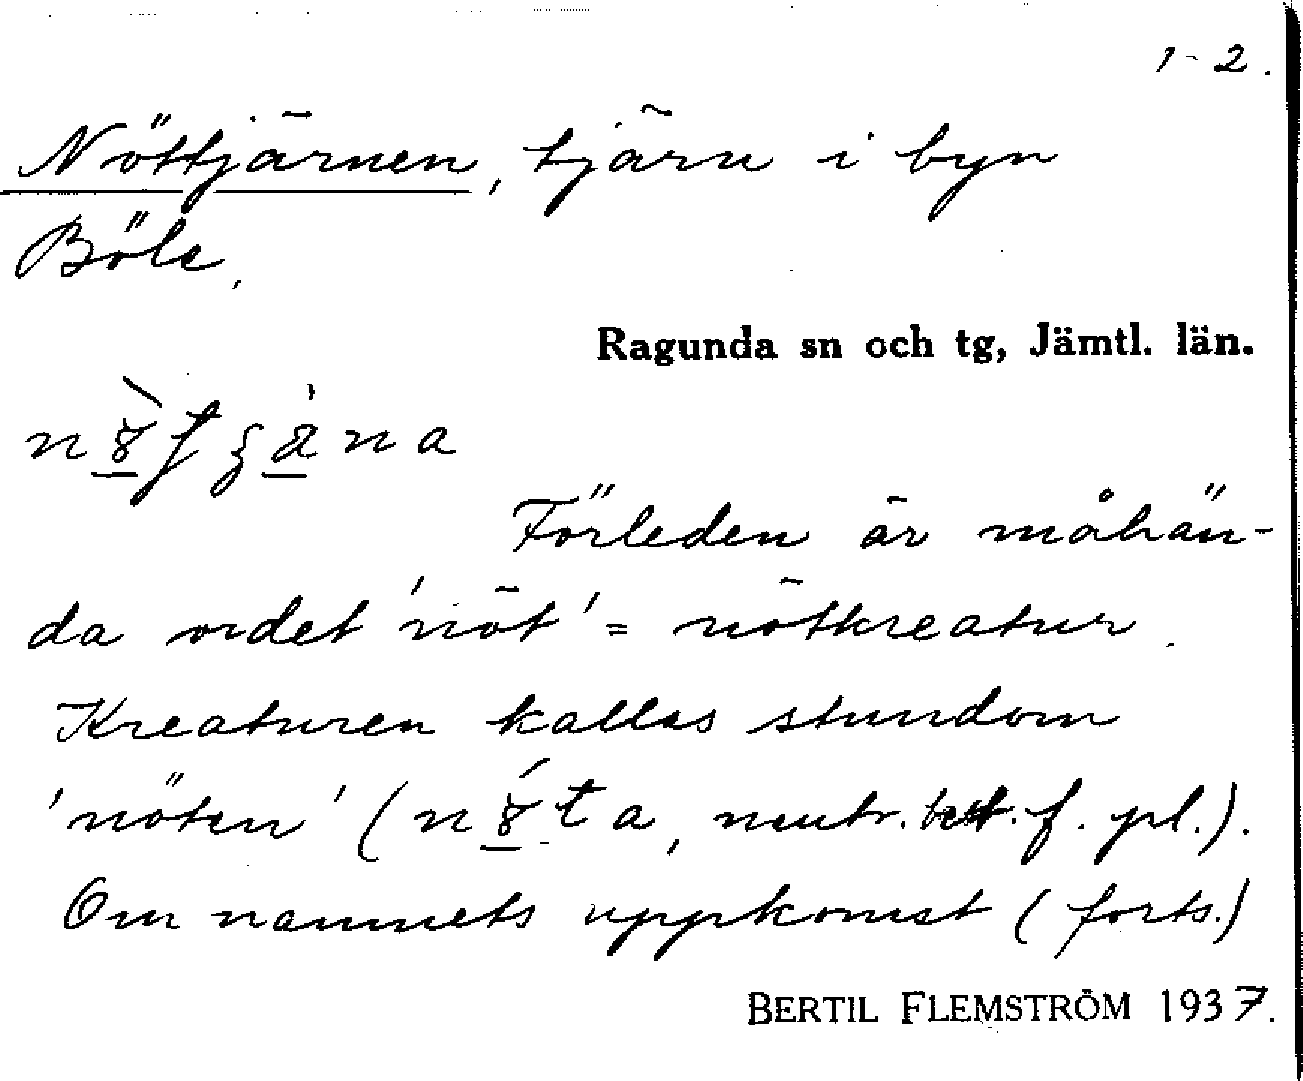 1-2.
Nöttjärnen, tjärn i byn
Böle.
Ragunda sn och tg, Jämtl. län.
Förleden är måhän-
da ordet 'nöt' = nötkreatur.
Kreaturen kallas stundom
'nöten' (, neutr. best. f. pl.).
Om namnets uppkomst (forts.)
BERTIL FLEMSTRÖM 1937.